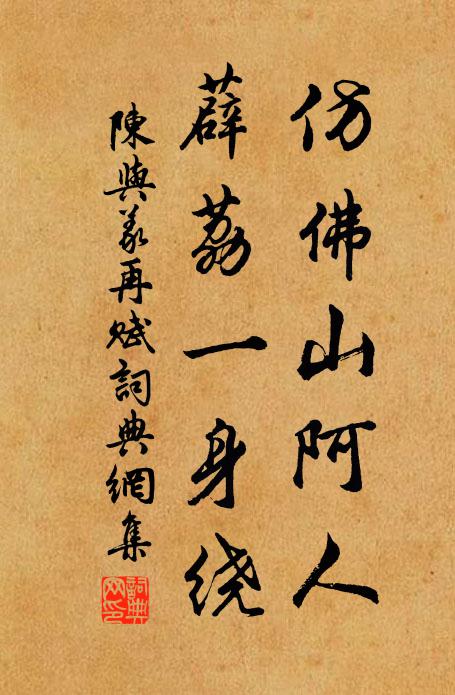 仿佛山阿人
薜荔一身绕
陳與義再赋詞典網集
詞典
网印